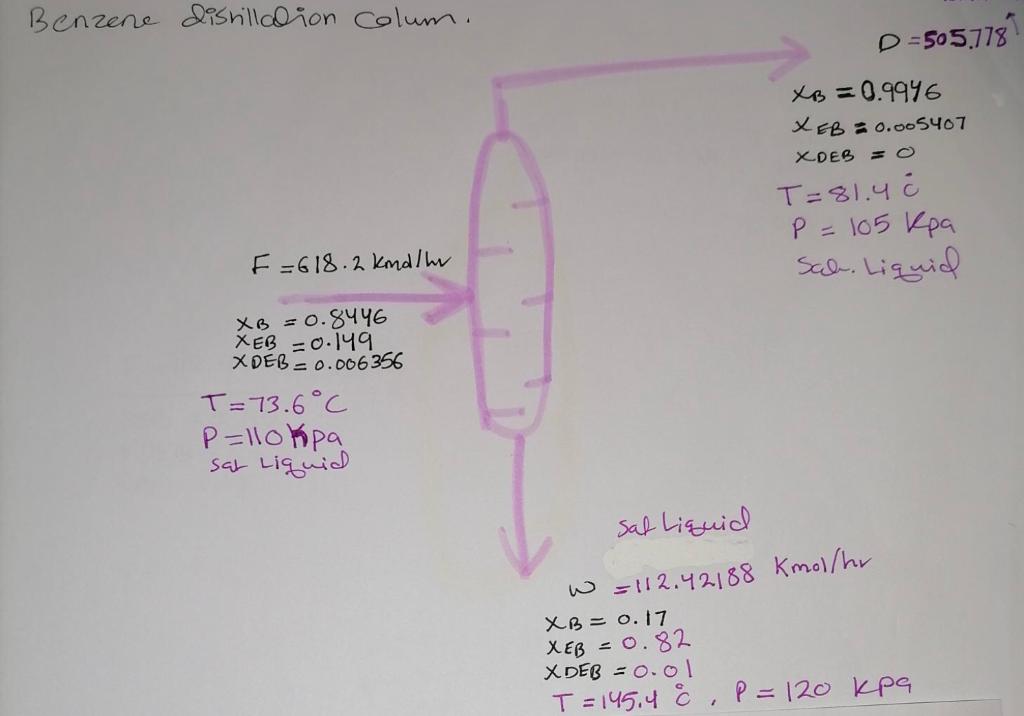 Benzene disrillation Colum.
D = 505.778
XB = 0.9946
XEB = 0.005407
XDEB = 0
T = 81.4 °C
P = 105 Kpa
Sat. Liquid
F = 618.2 kmol/hr
XB = 0.8446
XEB = 0.149
XDEB = 0.006356
T = 73.6 °C
P = 110 Kpa
sat Liquid
Sat Liquid
W = 112.42188 Kmol/hr
XB = 0.17
XEB = 0.82
XDEB = 0.01
T = 145.4 °C , P = 120 Kpa